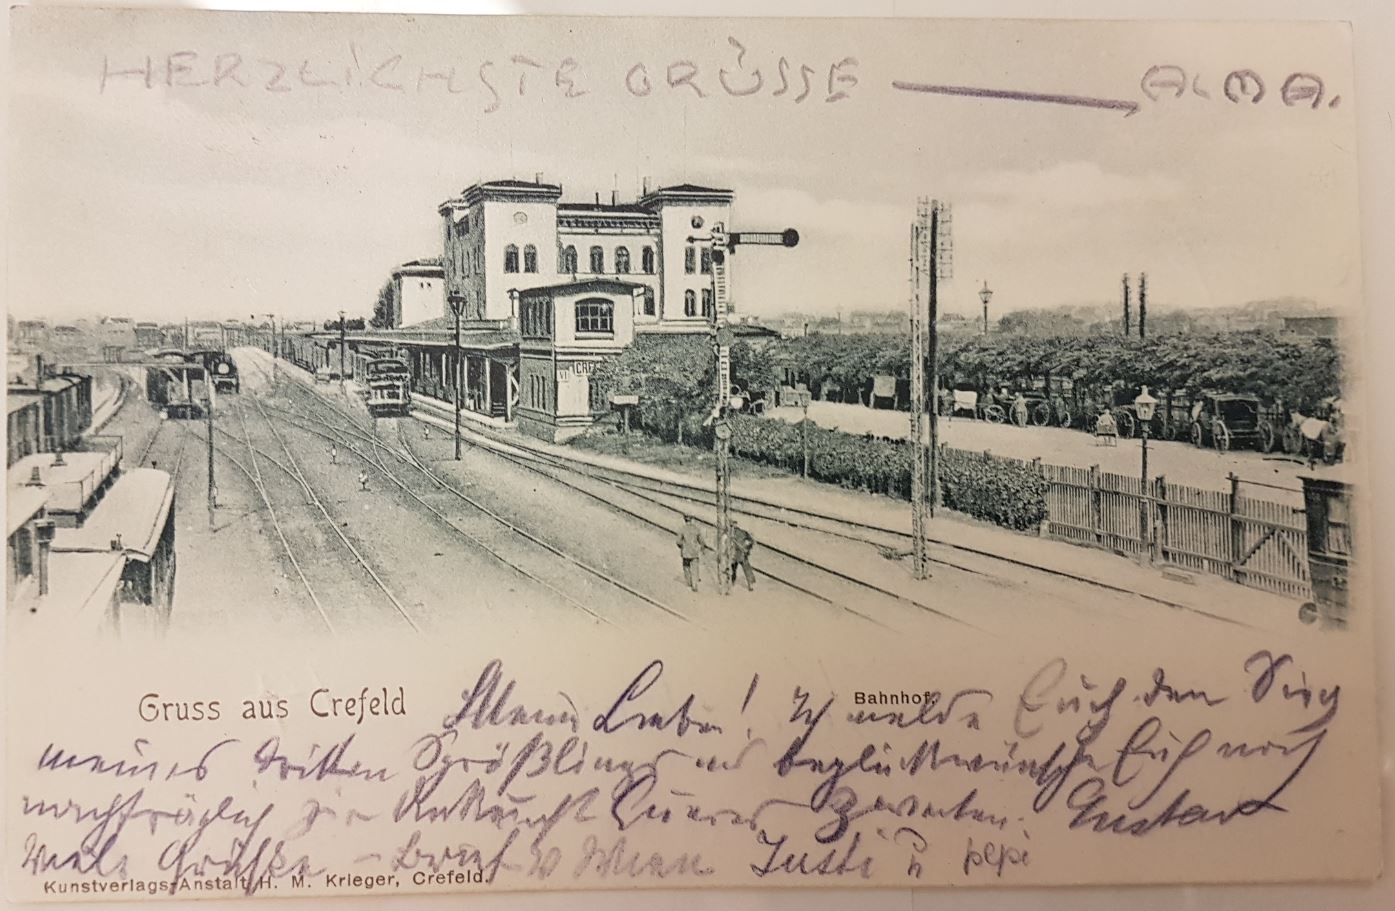 HERZLICHSTE GRÜSSE — ALMA.
VI CREF
Gruss aus Crefeld
Bahnhof.
Meine Lieben! Ich melde Euch den Sieg
meines dritten Sprößlings und beglückwünsche Euch noch
nachträglich zur Ankunft Eueres Zweiten. Gustav
Viele Grüße – Brief v Wien Justi u pepi
Kunstverlags-Anstalt H. M. Krieger, Crefeld.